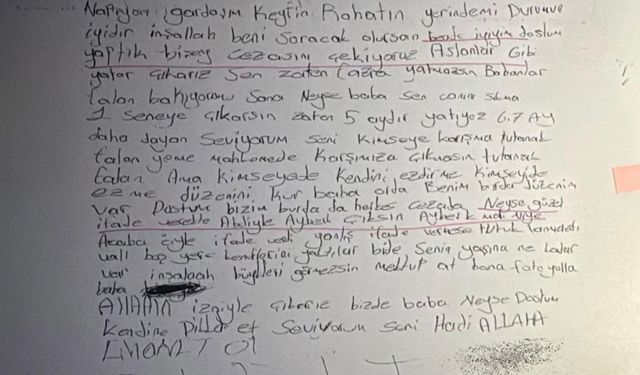 Napıyon gardaşım Keyfin Rahatın yerindemi Durumun
iyidir inşallah beni Soracak olursan bende iyiyim dostum
yaptık bizey cezasını çekiyoruz Aslanlar Gibi
yatar çıkarız Sen zaten fazla yatmazsın Babanlar
falan bakıyorlar Sana Neyse baba Sen canını sıkma
1 Seneye Çıkarsın zaten 5 aydır yatıyoz 6.7 Ay
daha dayan Seviyorum seni Kimseye karışma tutanak
falan yeme mahkemede Karşımıza Çıkmasın tutanak
falan Ama Kimseyede Kendini ezdirme Kimseyide
ezme düzenini Kur baba orda Benim burda düzenim
var Dostum bizim burda da herkes cezada Neyse güzel
ifade verdik Ayberk Çıksın Ayberk
Acaba öyle ifade verdi yanlış ifade vermese
boş yere bide Senin yaşına ne kadar
var inşalaah görmezsin mektup at bana foto yolla
baba
Allahın izniyle çıkarız bizde baba Neyse Dostum
Kendine Dikkat et Seviyorum Seni Hadi ALLAHA
EMANET Ol